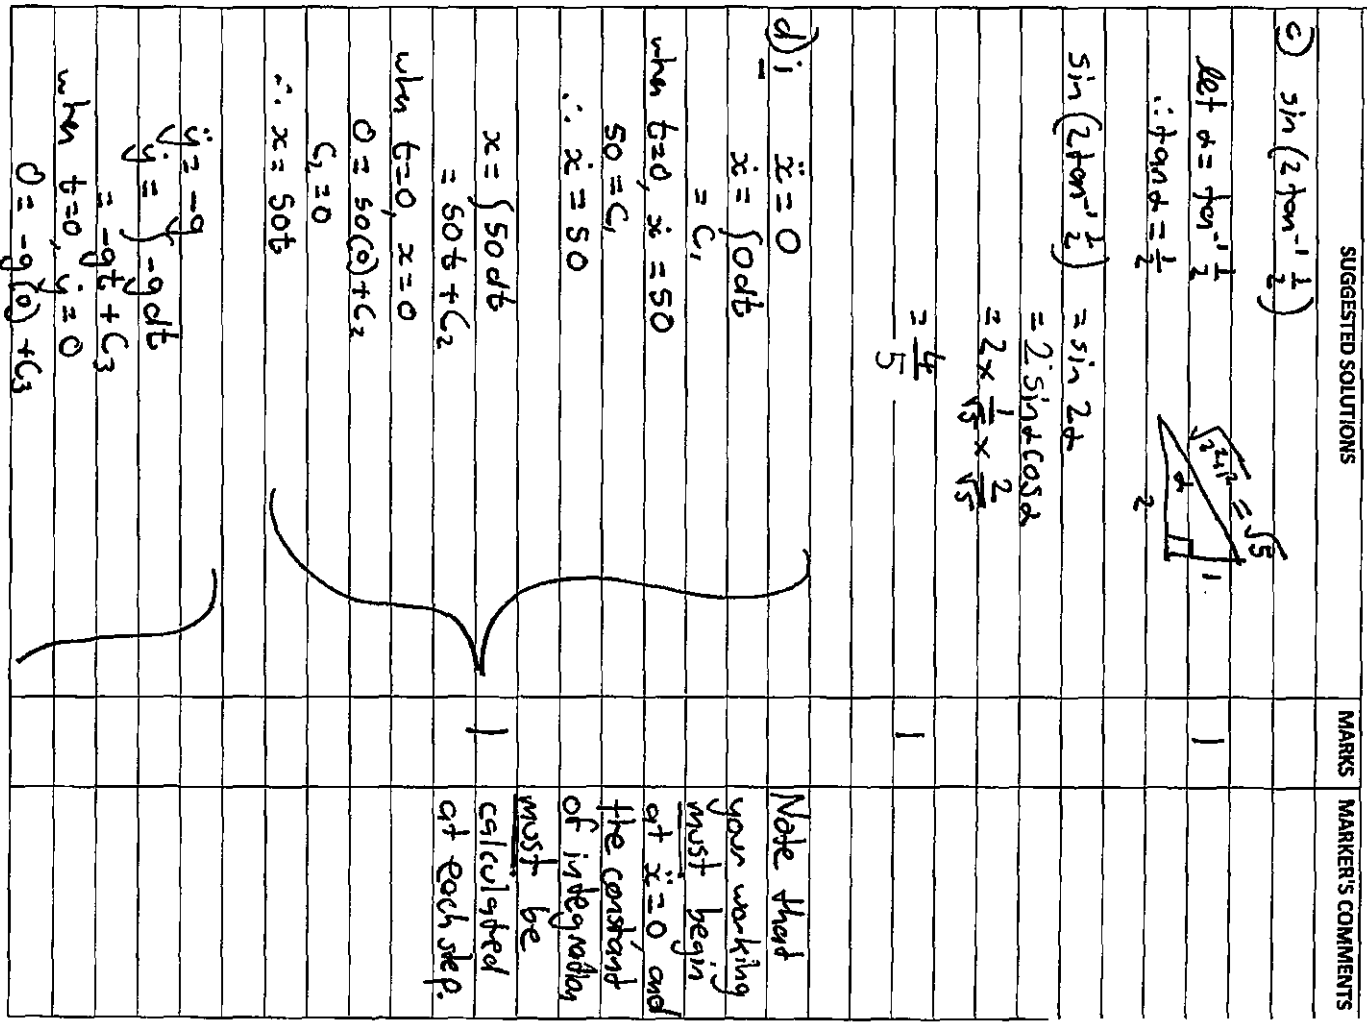 SUGGESTED SOLUTIONS
MARKS
MARKER'S COMMENTS
c) sin(2 tan⁻¹ 1/2)
let α = tan⁻¹ 1/2
∴ tan α = 1/2
√(2²+1²) = √5
α
1
2
1
sin(2tan⁻¹ 1/2) = sin 2α
= 2 sin α cos α
= 2 × 1/√5 × 2/√5
= 4/5
1
d) i ẍ = 0
ẋ = ∫0 dt
= C₁
when t=0, ẋ = 50
50 = C₁
∴ ẋ = 50
x = ∫50 dt
= 50t + C₂
when t=0, x=0
0 = 50(0) + C₂
C₂ = 0
∴ x = 50t
1
Note that
your working
must begin
at ẍ=0, and
the constant
of integration
must be
calculated
at each step.
ÿ = -g
ẏ = ∫-g dt
= -gt + C₃
when t=0, ẏ=0
0 = -g(0) + C₃